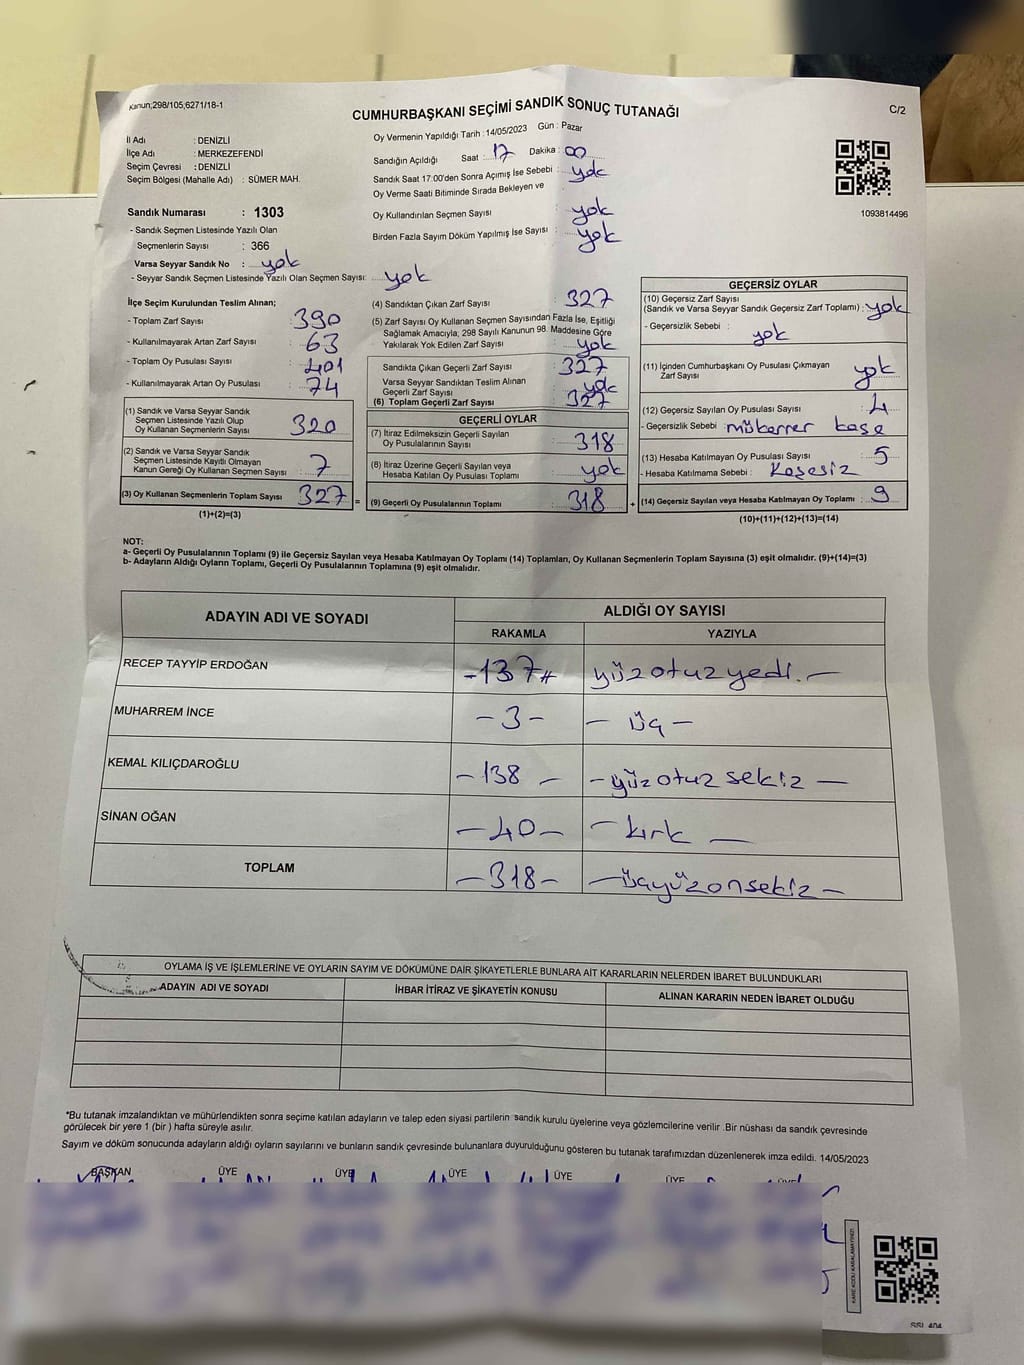 Kanun;298/105;6271/18-1
CUMHURBAŞKANI SEÇİMİ SANDIK SONUÇ TUTANAĞI
C/2
İl Adı : DENİZLİ
İlçe Adı : MERKEZEFENDİ
Seçim Çevresi : DENİZLİ
Seçim Bölgesi (Mahalle Adı) : SÜMER MAH.
Oy Vermenin Yapıldığı Tarih : 14/05/2023 Gün : Pazar
Sandığın Açıldığı Saat : 17 Dakika : 00
Sandık Saat 17:00'den Sonra Açımış İse Sebebi : yok
Oy Verme Saati Bitiminde Sırada Bekleyen ve
Oy Kullandırılan Seçmen Sayısı : yok
Birden Fazla Sayım Döküm Yapılmış İse Sayısı : yok
1093814496
Sandık Numarası : 1303
- Sandık Seçmen Listesinde Yazılı Olan
Seçmenlerin Sayısı : 366
Varsa Seyyar Sandık No : yok
- Seyyar Sandık Seçmen Listesinde Yazılı Olan Seçmen Sayısı: yok
İlçe Seçim Kurulundan Teslim Alınan;
- Toplam Zarf Sayısı : 390
- Kullanılmayarak Artan Zarf Sayısı : 63
- Toplam Oy Pusulası Sayısı : 401
- Kullanılmayarak Artan Oy Pusulası : 74
(1) Sandık ve Varsa Seyyar Sandık
Seçmen Listesinde Yazılı Olup
Oy Kullanan Seçmenlerin Sayısı : 320
(2) Sandık ve Varsa Seyyar Sandık
Seçmen Listesinde Kayıtlı Olmayan
Kanun Gereği Oy Kullanan Seçmen Sayısı : 7
(3) Oy Kullanan Seçmenlerin Toplam Sayısı : 327 =
(1)+(2)=(3)
(4) Sandıktan Çıkan Zarf Sayısı : 327
(5) Zarf Sayısı Oy Kullanan Seçmen Sayısından Fazla İse, Eşitliği
Sağlamak Amacıyla; 298 Sayılı Kanunun 98. Maddesine Göre
Yakılarak Yok Edilen Zarf Sayısı : yok
Sandıkta Çıkan Geçerli Zarf Sayısı : 327
Varsa Seyyar Sandıktan Teslim Alınan
Geçerli Zarf Sayısı : yok
(6) Toplam Geçerli Zarf Sayısı : 327
GEÇERLİ OYLAR
(7) İtiraz Edilmeksizin Geçerli Sayılan
Oy Pusulalarının Sayısı : 318
(8) İtiraz Üzerine Geçerli Sayılan veya
Hesaba Katılan Oy Pusulası Toplamı : yok
(9) Geçerli Oy Pusulalarının Toplamı : 318 +
GEÇERSİZ OYLAR
(10) Geçersiz Zarf Sayısı
(Sandık ve Varsa Seyyar Sandık Geçersiz Zarf Toplamı) : yok
- Geçersizlik Sebebi : yok
(11) İçinden Cumhurbaşkanı Oy Pusulası Çıkmayan
Zarf Sayısı : yok
(12) Geçersiz Sayılan Oy Pusulası Sayısı : 4
- Geçersizlik Sebebi : mükerrer kaşe
(13) Hesaba Katılmayan Oy Pusulası Sayısı : 5
- Hesaba Katılmama Sebebi : Kaşesiz
(14) Geçersiz Sayılan veya Hesaba Katılmayan Oy Toplamı : 9
(10)+(11)+(12)+(13)=(14)
NOT:
a- Geçerli Oy Pusulalarının Toplamı (9) ile Geçersiz Sayılan veya Hesaba Katılmayan Oy Toplamı (14) Toplamları, Oy Kullanan Seçmenlerin Toplam Sayısına (3) eşit olmalıdır. (9)+(14)=(3)
b- Adayların Aldığı Oyların Toplamı, Geçerli Oy Pusulalarının Toplamına (9) eşit olmalıdır.
ADAYIN ADI VE SOYADI
ALDIĞI OY SAYISI
RAKAMLA YAZIYLA
RECEP TAYYİP ERDOĞAN -137# yüzotuzyedi.-
MUHARREM İNCE -3- - üç -
KEMAL KILIÇDAROĞLU -138 - -yüzotuz sekiz -
SİNAN OĞAN -40- - kırk -
TOPLAM -318- -üçyüzonsekiz -
OYLAMA İŞ VE İŞLEMLERİNE VE OYLARIN SAYIM VE DÖKÜMÜNE DAİR ŞİKAYETLERLE BUNLARA AİT KARARLARIN NELERDEN İBARET BULUNDUKLARI
ADAYIN ADI VE SOYADI İHBAR İTİRAZ VE ŞİKAYETİN KONUSU ALINAN KARARIN NEDEN İBARET OLDUĞU
*Bu tutanak imzalandıktan ve mühürlendikten sonra seçime katılan adayların ve talep eden siyasi partilerin sandık kurulu üyelerine veya gözlemcilerine verilir .Bir nüshası da sandık çevresinde
görülecek bir yere 1 (bir ) hafta süreyle asılır.
Sayım ve döküm sonucunda adayların aldığı oyların sayılarını ve bunların sandık çevresinde bulunanlara duyurulduğunu gösteren bu tutanak tarafımızdan düzenlenerek imza edildi. 14/05/2023
BAŞKAN ÜYE ÜYE ÜYE ÜYE ÜYE ÜYE
KARE KODU KARALAMAYINIZ!